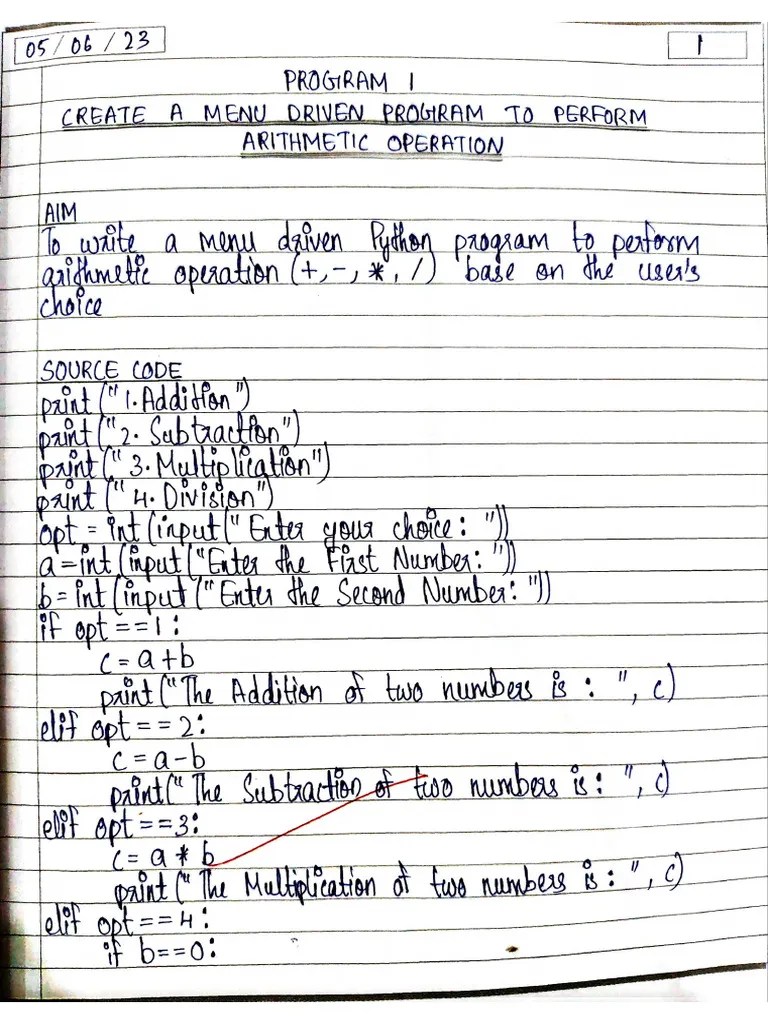 05/06/23
1
PROGRAM 1
CREATE A MENU DRIVEN PROGRAM TO PERFORM
ARITHMETIC OPERATION
AIM
To write a menu driven Python program to perform
arithmetic operation (+,-,*,/) base on the user's
choice
SOURCE CODE
print ("1.Addition")
print ("2. Subtraction")
print ("3.Multiplication")
print ("4. Division")
opt = int (input ("Enter your choice: "))
a = int (input ("Enter the First Number: "))
b = int (input ("Enter the Second Number: "))
if opt == 1 :
c = a + b
print ("The Addition of two numbers is : ", c)
elif opt == 2:
c = a - b
print ("The Subtraction of two numbers is : ", c)
elif opt == 3:
c = a * b
print ("The Multiplication of two numbers is : ", c)
elif opt == 4:
if b == 0: